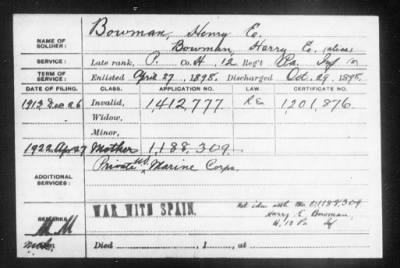 Bowman, Henry E.
NAME OF SOLDIER: Bowman, Harry E. (alias)
SERVICE: Late rank, P. Co. H, 12 Reg't Pa. Inf
TERM OF SERVICE: Enlisted April 27, 1898. Discharged Oct. 29, 1898.
DATE OF FILING. CLASS. APPLICATION NO. LAW. CERTIFICATE NO.
1913 Dec 26 Invalid, 1,412,777 1,201,876.
Widow,
Minor,
1922 Apr 27 Mother 1188,309
ADDITIONAL SERVICES: Private U.S. Marine Corps.
WAR WITH SPAIN. Not iden with Mo. O. 1188,309
REMARKS: Harry E. Bowman,
H, 12 Pa Inf
Died , 1 , at